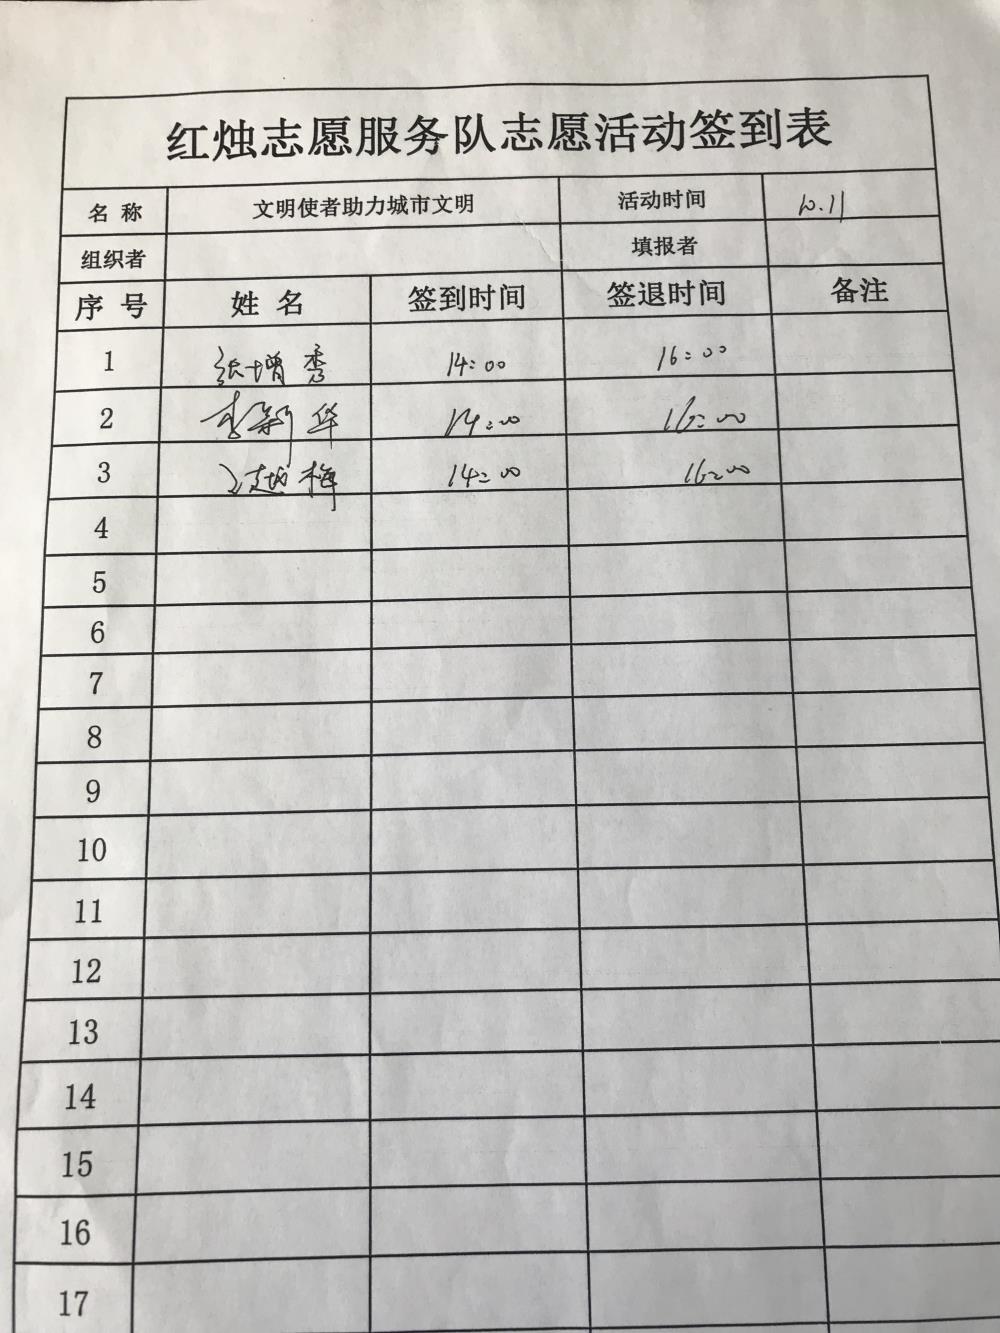 红烛志愿服务队志愿活动签到表
名 称 文明使者助力城市文明 活动时间 10.11
组织者 填报者
序 号 姓 名 签到时间 签退时间 备注
1 张增秀 14:00 16:00
2 李新华 14:00 16:00
3 赵梅 14:00 16:00
4
5
6
7
8
9
10
11
12
13
14
15
16
17